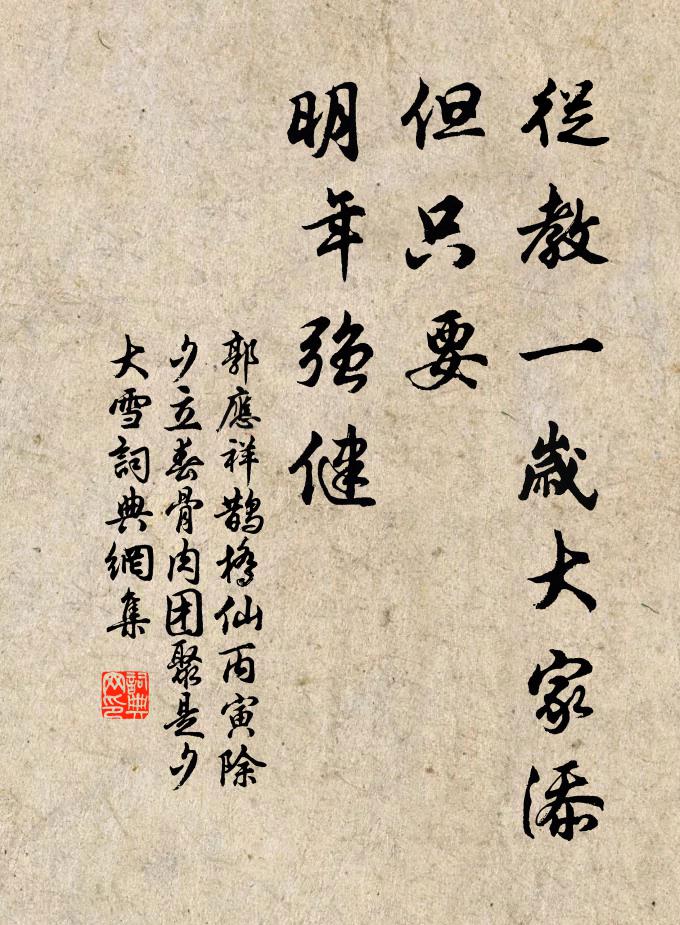 從教一歲大家添
但只要
明年強健
郭應祥鵲橋仙丙寅除
夕立春骨肉团聚是夕
大雪詞典網集
詞典
网印